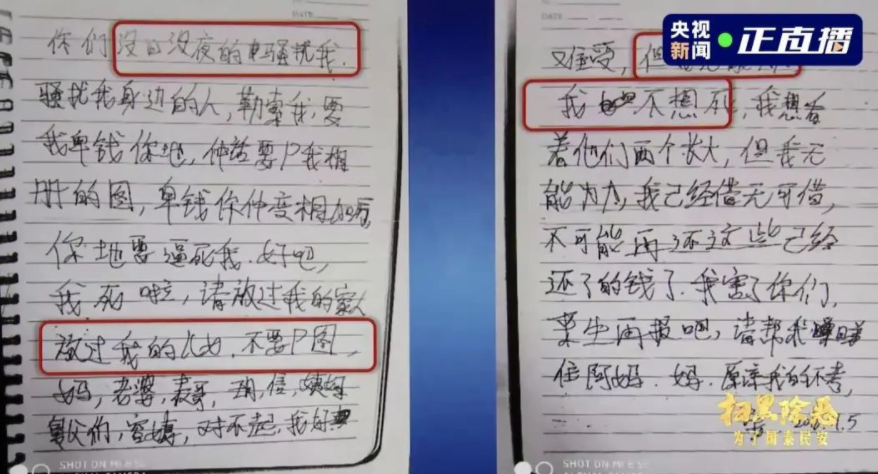 你们没日没夜的骚扰我.
骚扰我身边的人,勒索我,要
我畀钱你地,仲话要P我相
册的图,畀钱你仲变相加码,
你地要逼死我.好吧,
我死啦,请放过我的家人
放过我的儿女,不要P图,
妈,老婆,表哥,
舅父们,对不起,我好
央视新闻 正直播
难受,但
我 不想死,我想看
着他们两个长大,但我无
能为力,我已经借无可借,
不可能再还这些已经
还了的钱了.我害了你们,
来生再报吧,请帮我
住阿妈.妈.原谅我的不孝,
扫黑除恶
为了国泰民安
SHOT ON MI 8 SE
SHOT ON MI 8 SE